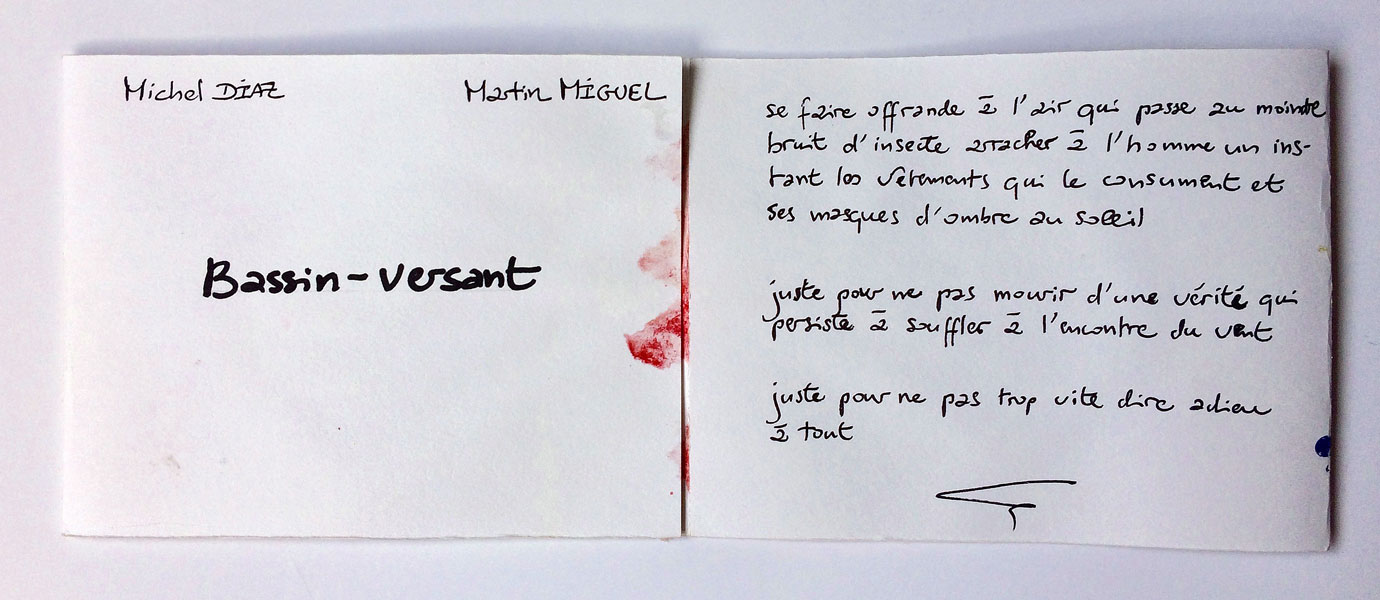 Michel DÍAZ
Martin MIGUEL
Bassin-versant
se faire offrande à l'air qui passe au moindre
bruit d'insecte arracher à l'homme un ins-
tant les vêtements qui le consument et
ses masques d'ombre au soleil
juste pour ne pas mourir d'une vérité qui
persiste à souffler à l'encontre du vent
juste pour ne pas trop vite dire adieu
à tout